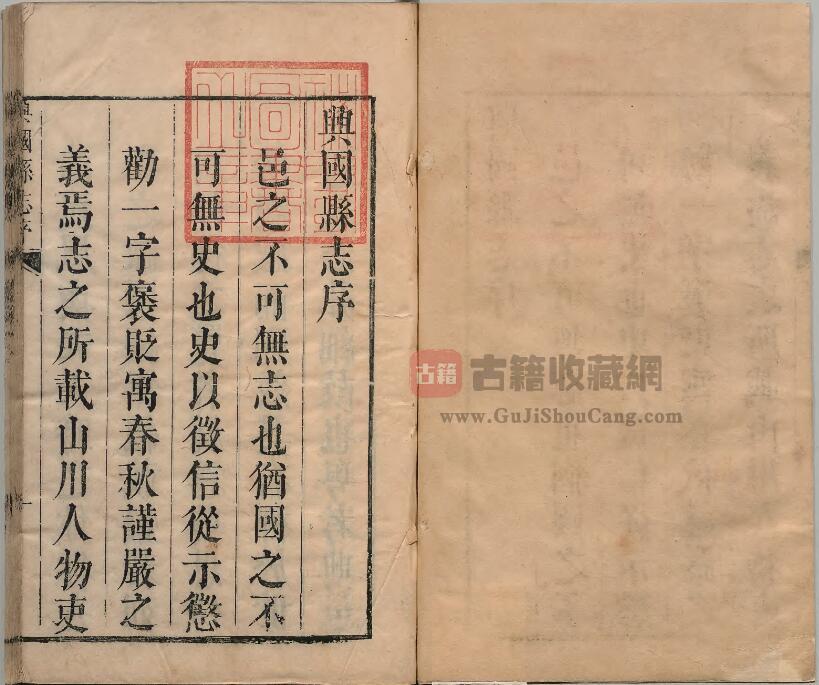 興國縣志序
邑之不可無志也猶國之不
可無史也史以徵信從示懲
勸一字褒貶寓春秋謹嚴之
義焉志之所載山川人物吏
興國縣志序
一
古籍
古籍收藏網
www.GuJiShouCang.com